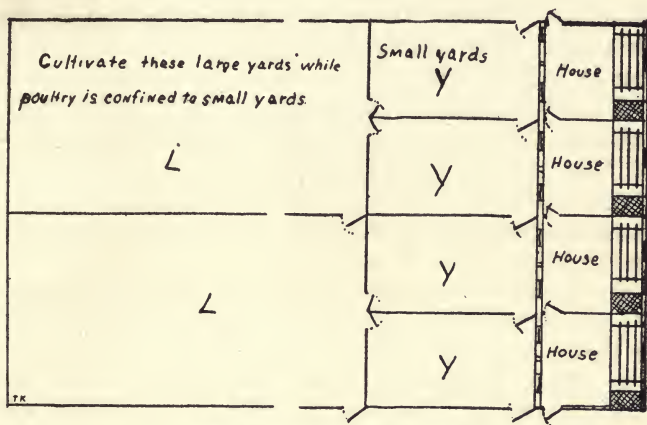 Cultivate these large yards while
poultry is confined to small yards.
Small yards
Y
House
L
Y
House
Y
House
L
Y
House
TK